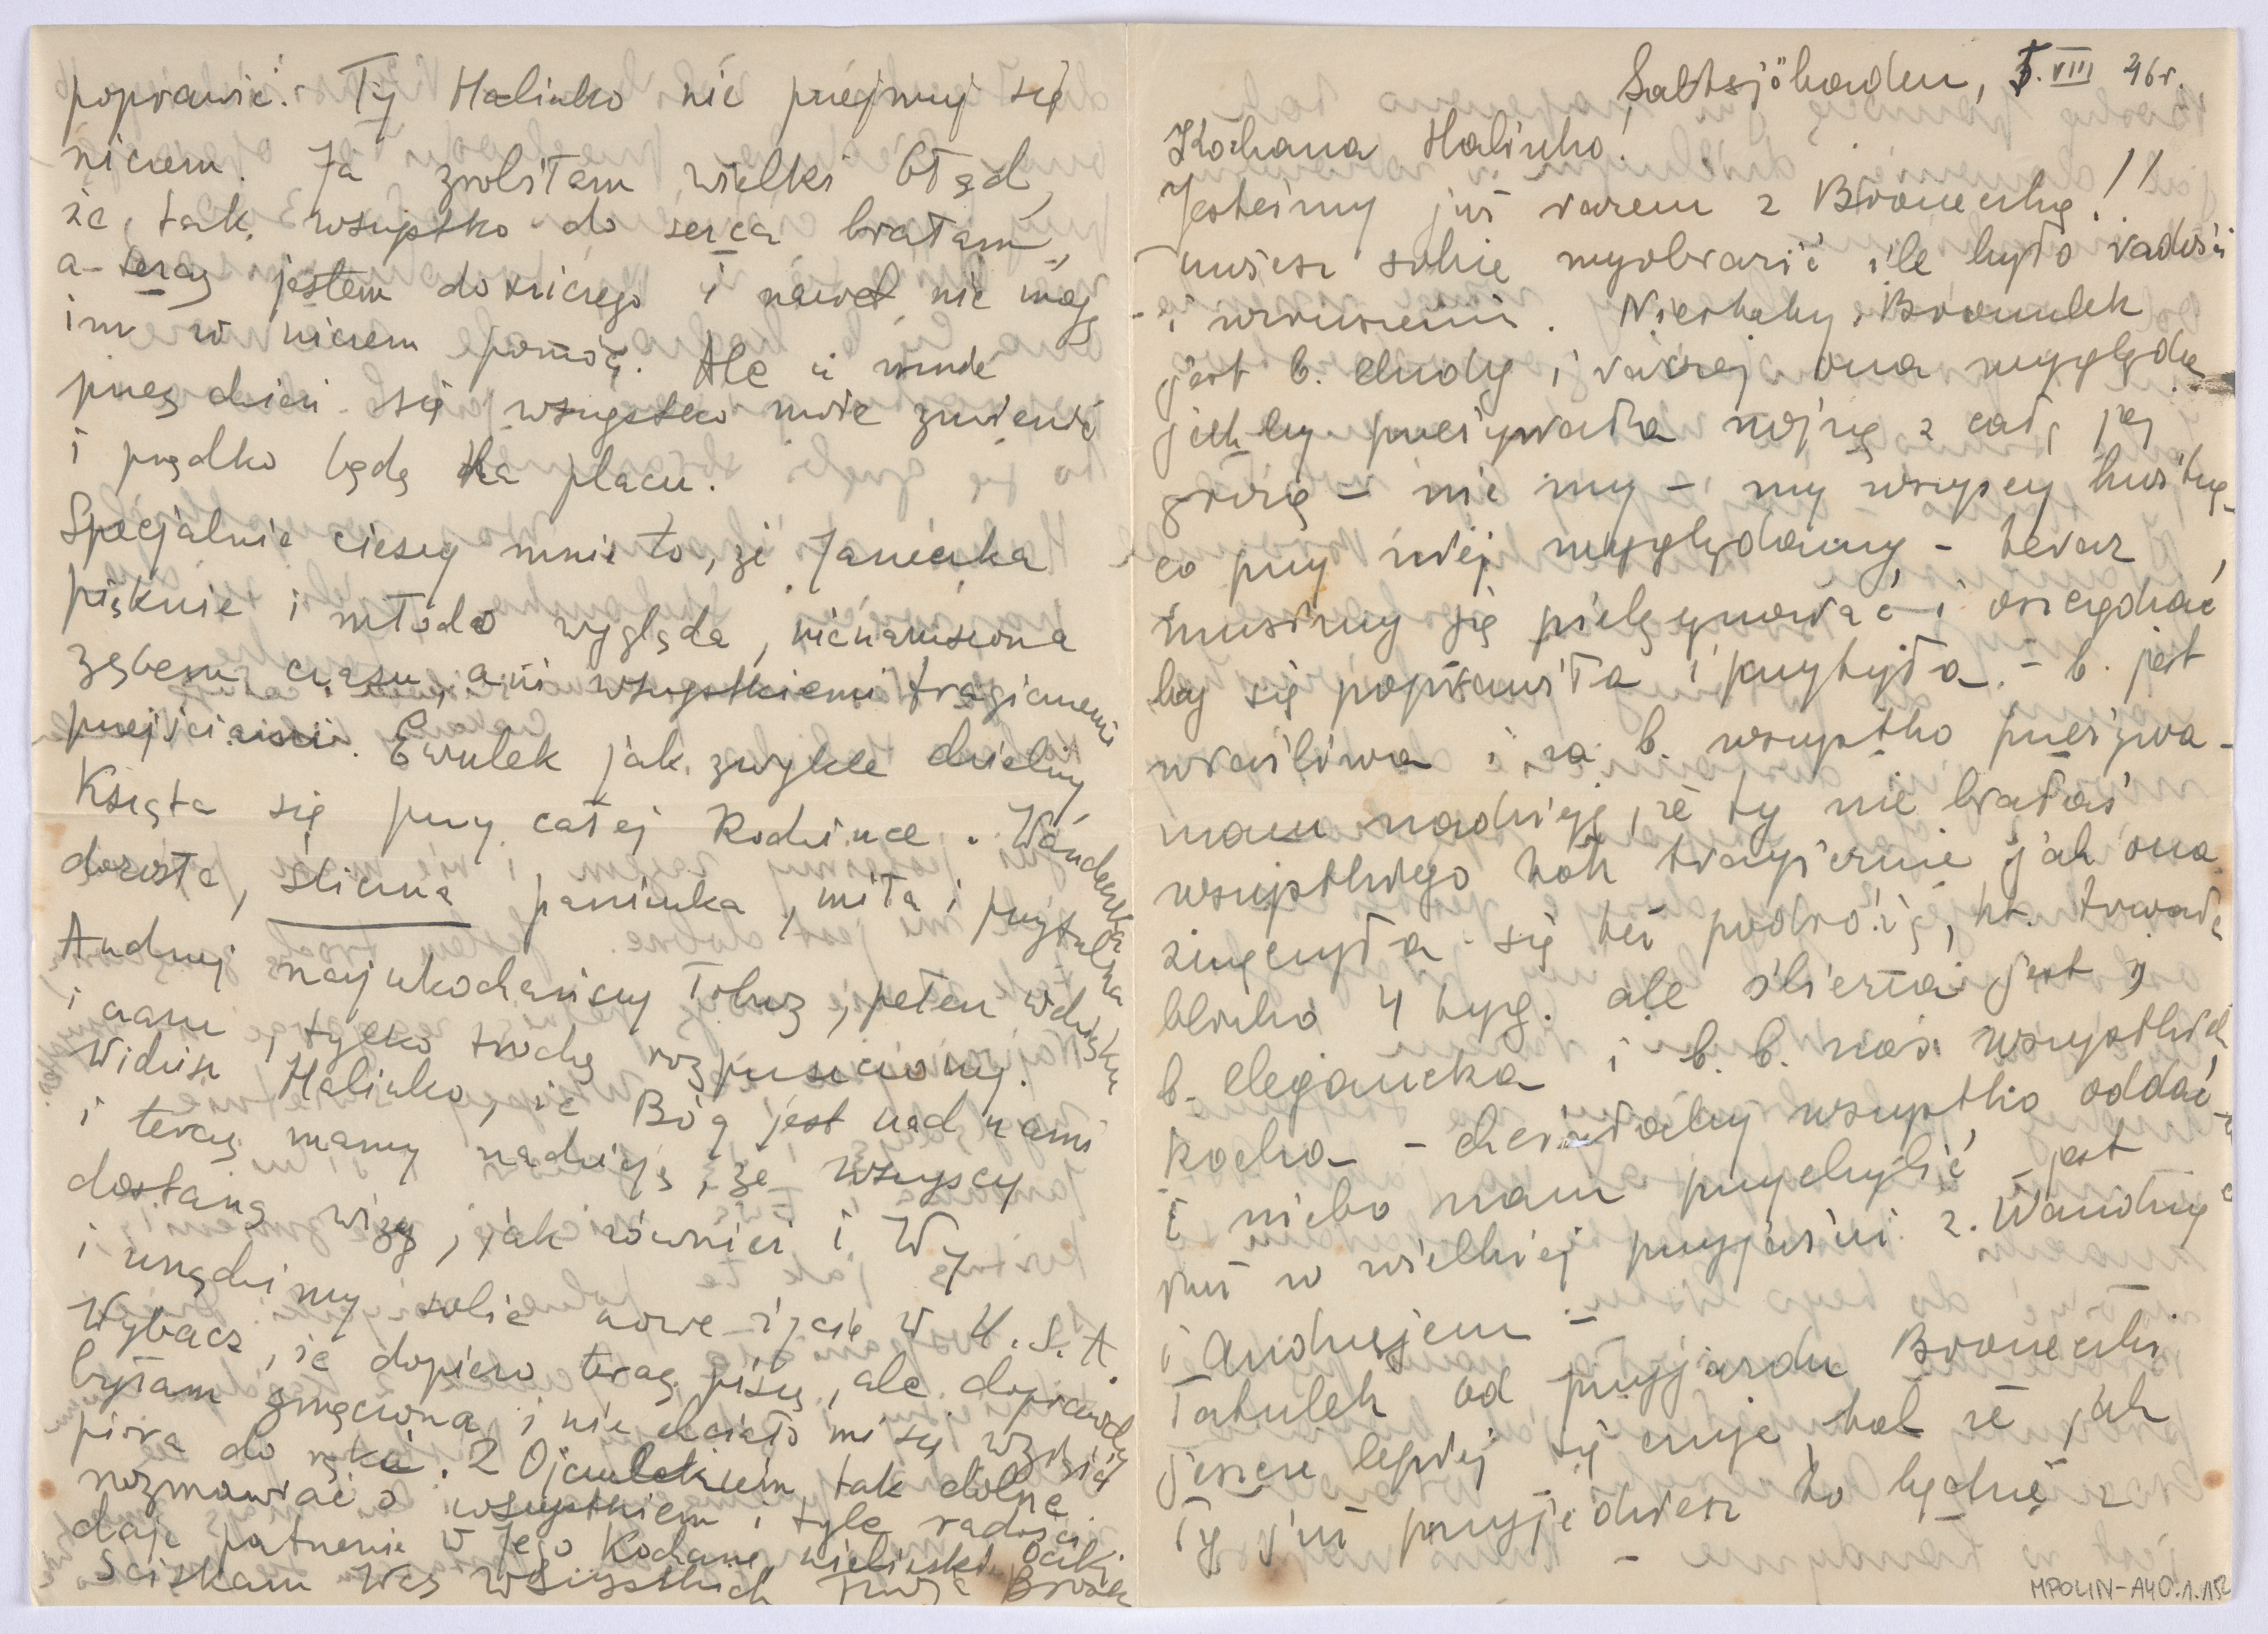 Saltsjöbaden, 5. VIII 46r.
Kochana Halinko!
Jesteśmy już razem z Broneczką!!
możesz sobie wyobrazić ile było radości
i wzruszenia. Niestety, Broniulek
jest b. chudy i raczej ona wygląda
jakby przeżywała wojnę z całą jej
grozą – nie my – my wszyscy
co przy niej wyglądamy, – teraz
musimy się pielęgnować i oszczędzać
by się poprawiła i przytyła. – b. jest
wrażliwa i za b. wszystko przeżywa –
mam nadzieję, że ty nie brałaś
wszystkiego tak tragicznie jak ona.
zmęczyła się też podróżą, kt. trwała
blisko 4 tyg. ale śliczna jest,
b. elegancka i b. b. nas wszystkich
kocha – chciałaby wszystko oddać
i niebo nam przychylić – jest
już w wielkiej przyjaźni z Wandzią
i Andrzejem –
Tatulek od przyjazdu Broneczki
jeszcze lepiej się czuje, tak że jak
Ty już przyjedziesz to będzie z
poprawić. Ty Halinko nie przejmuj się
niczem. Ja zrobiłam wielki błąd,
że tak wszystko do serca brałam,
a teraz jestem do niczego i nawet nie mogę
im w niczem pomóc. Ale
przez dzień się wszystko może zmienić
i prędko będę na placu.
Specjalnie cieszy mnie to, że Janeczka
pięknie i młodo wygląda, nienaruszona
zębem czasu, ani wszystkiemi tragicznemi
przejściami. Ewulek jak zwykle dzielny
Krząta się przy całej Rodzince. Wandeczka
dorosła, śliczna panienka, miła i przytulna
Andrzej najukochańszy Łobuz, pełen wdzięku
i czaru, tylko trochę rozpuszczony.
Widzisz Halinko, że Bóg jest nad nami
i teraz mamy nadzieję, że wszyscy
dostaną wizy, jak również i Wy
i urządzimy sobie nowe życie w U.S.A.
Wybacz, że dopiero teraz piszę, ale doprawdy
byłam zmęczona i nie chciało mi się wziąść
pióra do ręki. Z Ojculekiem tak dobrze
rozmawiać o wszystkiem i tyle radości
daje patrzenie w Jego Kochane niebieskie oczki.
Ściskam Was wszystkich Twoja Bronka
MPOLIN-A40.1.152